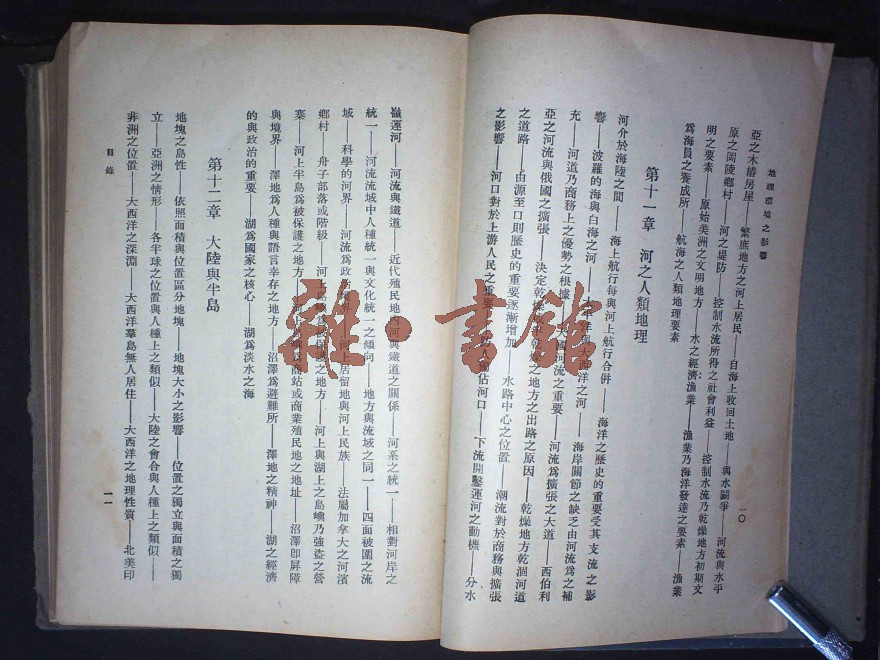 地理環境之影響
一〇
亞之木樁房屋——繁庶地方之河上居民——自海上收回土地——與水鬭爭——河流與水平
原之岡陵鄉村——河之堤防——控制水流所得之社會利益——控制水流乃乾燥地方初期文
明之要素——原始美洲之文明地方——水之經濟漁業——漁業乃海洋發達之要素——漁業
爲海員之養成所——航海之人類地理要素
第十一章 河之人類地理
河介於海陸之間——海上航行每與河上航行合併——海洋之歷史的重要受其支流之影
響——波羅的海與白海之河——太平洋與大西洋之河——海岸關節之缺乏由河流爲之補
充——河道乃商務上之優勢之根據——大國河流之重要——河流爲擴張之大道——西伯利
亞之河流與俄國之擴張——決定乾燥與半乾燥之地方之出路之原因——乾燥地方乾涸河道
之道路——由源至口則歷史的重要逐漸增加——水路中心之位置——潮流對於商務與擴張
之影響——河口對於上游人民之重要——防人獨佔河口——下流開鑿運河之動機——分水
嶺運河——河流與鐵道——近代殖民地內河與鐵道之關係——河系之統一——相對河岸之
統一——河流流域中人種統一與文化統一之傾向——地方與流域之同一——四面被圍之流
域——科學的河界——河流爲政治境界——河上居留地與河上民族——法屬加拿大之河濱
鄉村——舟子部落或階級——河上島嶼爲保護之地方——河上與湖上之島嶼乃強盜之營
寨——河上半島爲被保護之地方——河上島嶼爲商站或商業殖民地之地址——沼澤卽屏障
與境界——澤地爲人種與語言幸存之地方——沼澤爲避難所——澤地之精神——湖之經濟
的與政治的重要——湖爲國家之核心——湖爲淡水之海
第十二章 大陸與半島
地塊之島性——依照面積與位置區分地塊——地塊大小之影響——位置之獨立與面積之獨
立——亞洲之情形——各半球之位置與人種上之類似——大陸之會合與人種上之類似——
非洲之位置——大西洋之深淵——大西洋羣島無人居住——大西洋之地理性質——北美印
目錄
一一
雜·書館